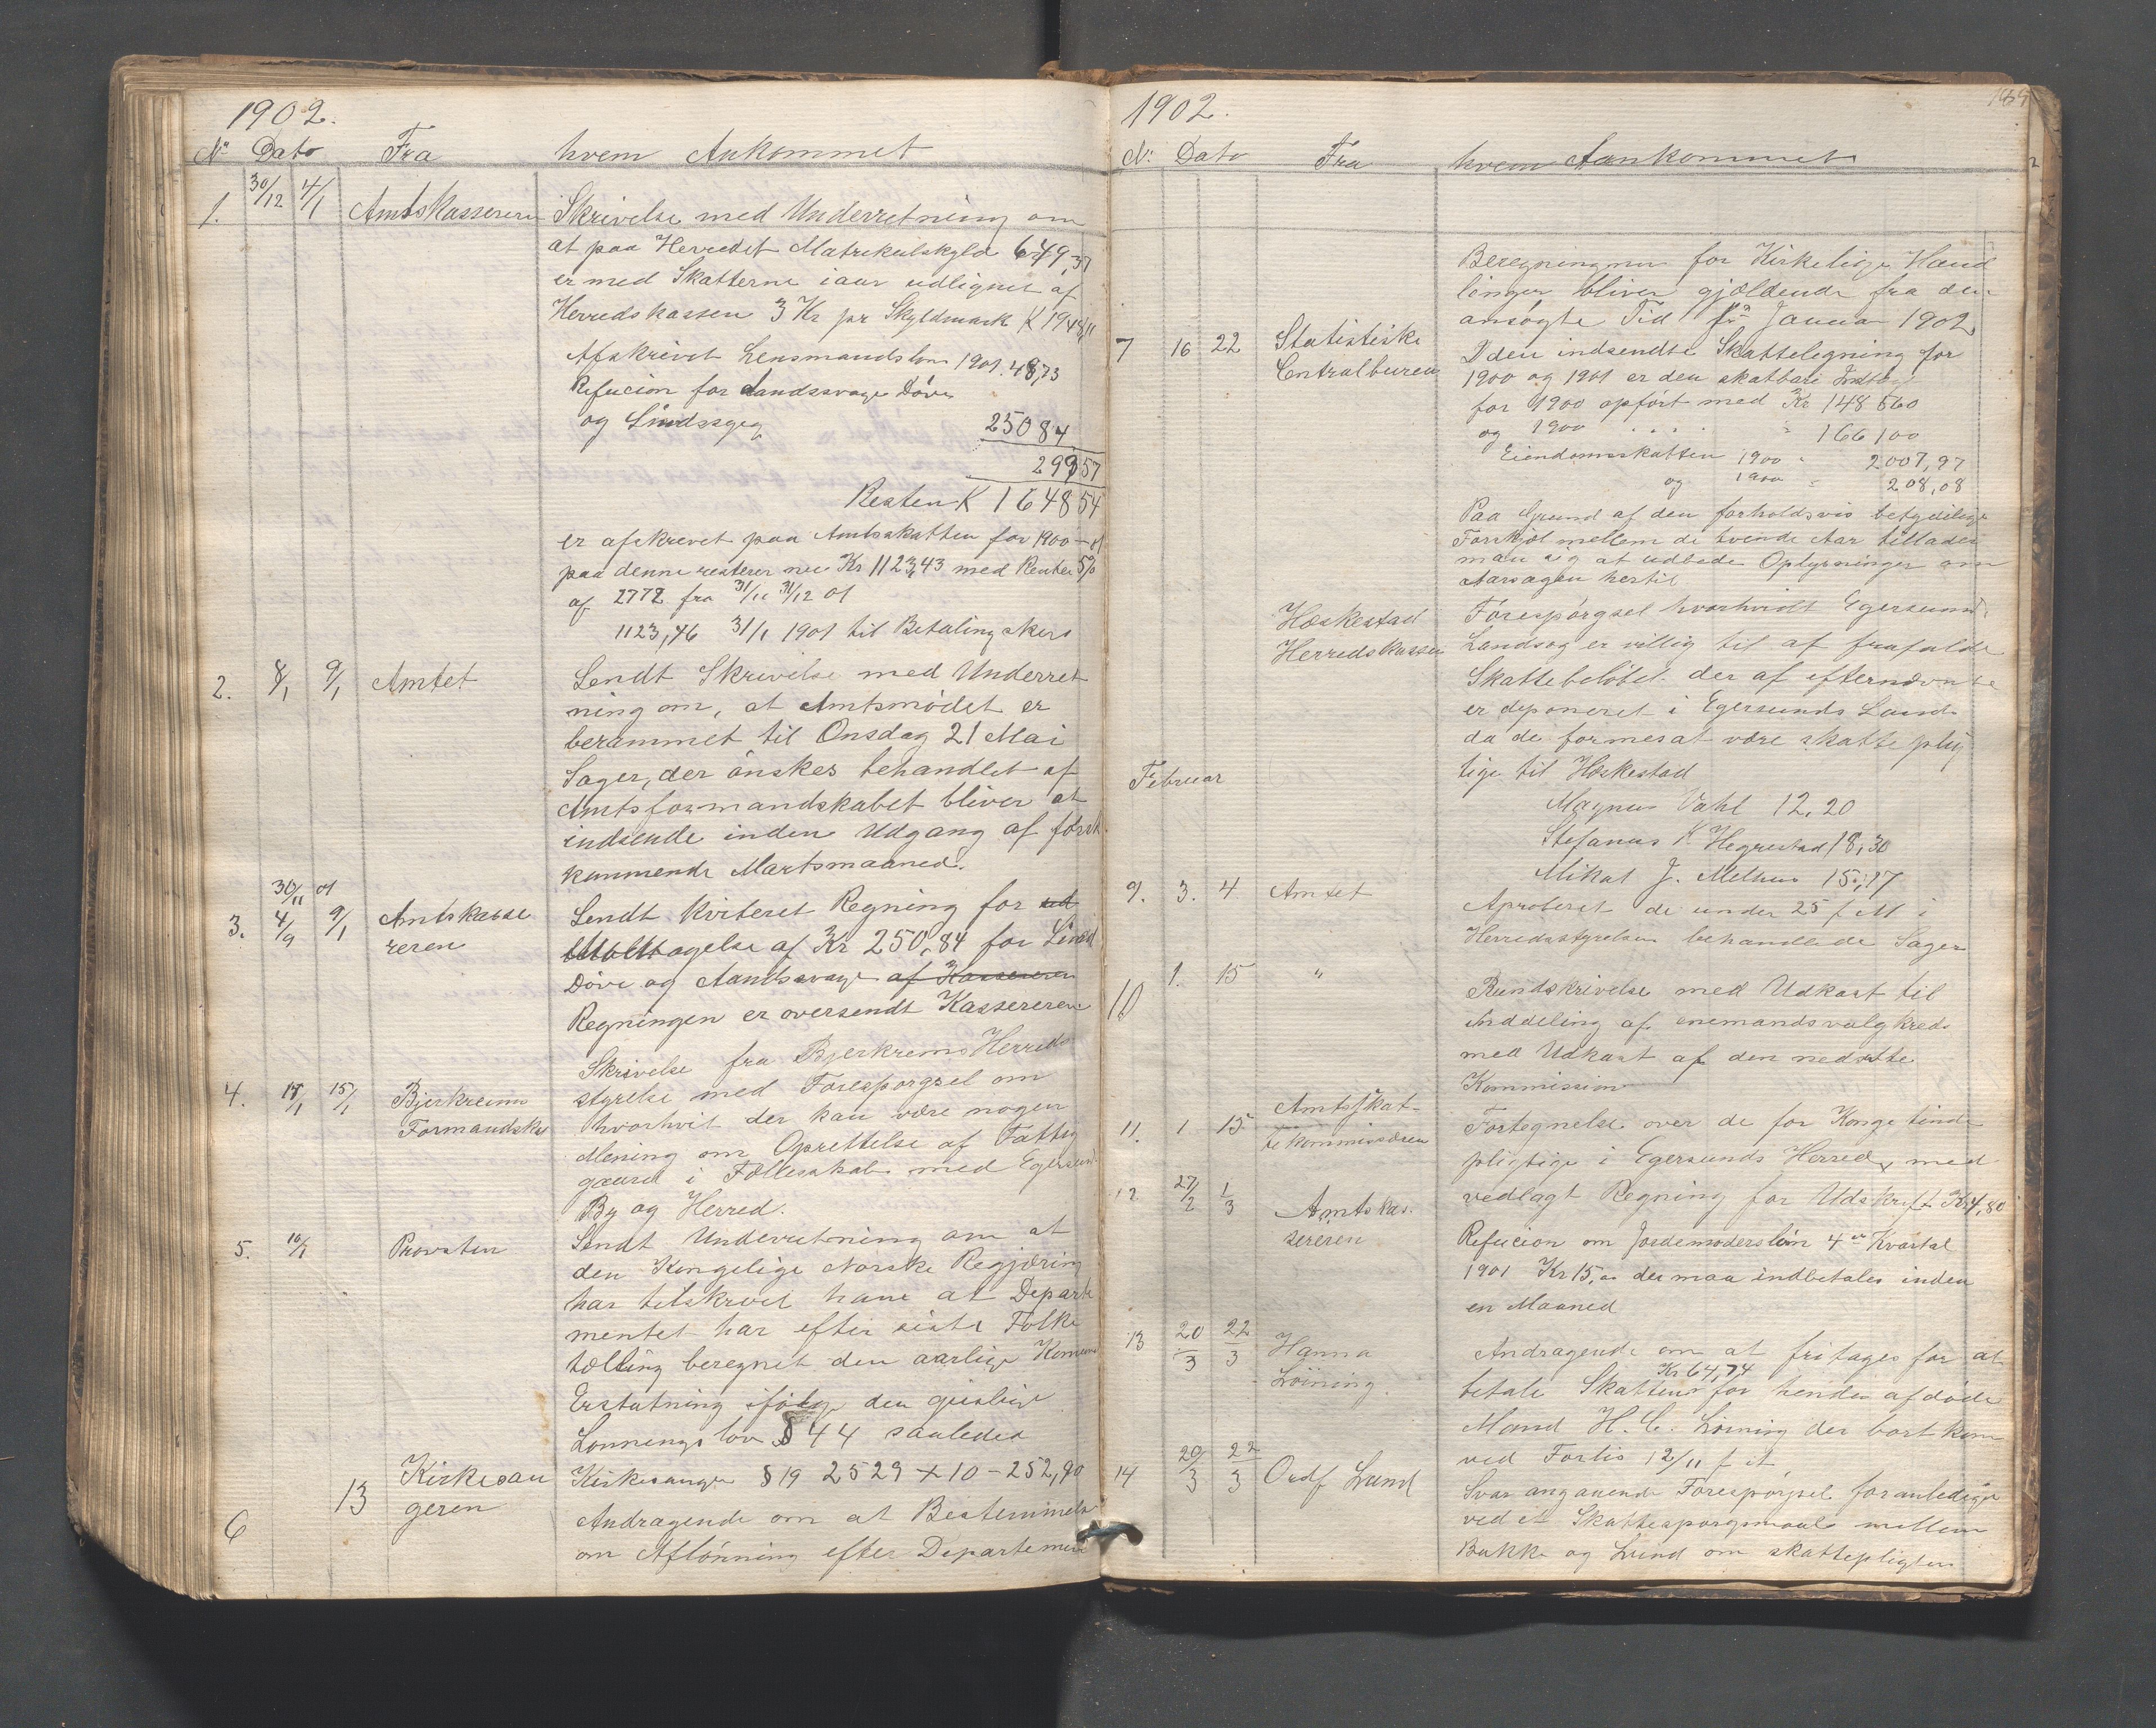 1902.
No Dato Fra hvem Ankommet
1. 30/12 4/1 Amtskassereren Skrivelse med Underretning om
at paa Herredet Matrikulskyld 649,37
er med Skatterne iaar udlignet af
Herredskassen 3 Kr pr Skyldmark K 1948,11
Afskrivet Lensmandsløn 1901. 48,73
Refucion for Aandssvage Døve
og Sindssyge 250 84
299 57
Resten K 1648 54
er afskrevet paa Amtsskatten for 1900-01
paa denne resterer nu Kr 1123,43 med Renter 5%
af 2772 fra 31/11 31/12 01
1123,46 31/1 1901 til Betaling skers
2. 8/1 9/1 Amtet Sendt Skrivelse med Underret
ning om, at Amtsmødet er
berammet til Onsdag 21 Mai
Sager, der ønskes behandlet af
Amtsformandskabet bliver at
indsende inden Udgang af først
kommende Martsmaaned.
3. 30/11 01 4/9 9/1 Amtskasse
reren
Sendt kviteret Regning for ud
Modtagelse af Kr 250,84 for Sind
Døve og Aandssvage af Kassereren
Regningen er oversendt Kassereren
4. 15/1 Bjerkreims
Formandskab
Skrivelse fra Bjerkreims Herreds
styrelse med Forespørgsel om
hvorhvit der kan være nogen
Mening om Oprettelse af Fattig
gaard i Fællesskab med Egersund
By og Herred.
5. 10/1 Provsten Sendt Underretning om at
den Kongelige Norske Regjæring
har tilskrevet ham at Departe
mentet har efter siste Folke
tælling beregnet den aarlige
Erstatning ifølge den geistlige
Lønnings lov § 44 saaledes
Kirkesanger § 19 2529 x 10 - 252,90
6 13 Kirkesan
geren
Andragende om at Bestemmelse
om Aflønning efter Departemen
1902.
No. Dato Fra hvem Aankommet
Beregningner for Kirkelige Hand
linger bliver gjældende fra den
ansøgte Tid fra Januar 1902
7 16 22 Statistiske
Centralbureau
I den indsendte Skattelegning for
1900 og 1901 er den skatbare Indtægt
for 1900 opført med Kr 148 560
og 1900 . . . . " 166 100
Eiendomsskatten 1900 " 2007,97
og 1900 " 208,08
Paa Grund af den forholdsvis betydelige
Forskjel mellem de tvende Aar tillader
man sig at udbede Oplysninger om
Aarsagen hertil
Heskestad
Herredskasse
Forespørgsel hvorhvidt Egersund
Landsog er villig til af frafalde
Skattebeløbet der af efternævnte
er deponeret i Egersunds Land
da de formes at være skatteplig
tige til Heskestad
Februar
Magnus Vahl 12,20
Stefanus K Hegrestad 18,30
Mikal J. Melhus 15,17
9. 3. 4 Amtet Aproberet de under 25 f M i
Herredsstyrelsen behandlede Sager
10 1. 15 " Rundskrivelse med Udkast til
Inddeling af enemandsvalgkreds
med Udkast af den nedsatte
Kommission
11. 1 15 Amtsskat-
tekommissæren
Fortegnelse over de for Konge tiende
pligtige i Egersunds Herred, med
vedlagt Regning for Udskrift Kr 4,80
12 27/2 1/3 Amtskas.
sereren
Refucion om Jordemodersløn 4de Kvartal
1901 Kr 15,00 der maa indbetales inden
en Maaned
13 20/3 22/3 Hanna
Løining.
Andragende om at fritages for at
betale Skatten Kr 64,74 for hendes afdøde
Mand H. C. Løining der bortkom
ved Forlis 12/11 f A
14 20/3 22/3 Ordf Lund Svar angaaende Forespørgsel foranlediget
ved et Skattespørgsmaal mellem
Bakke og Lund om skattepligten